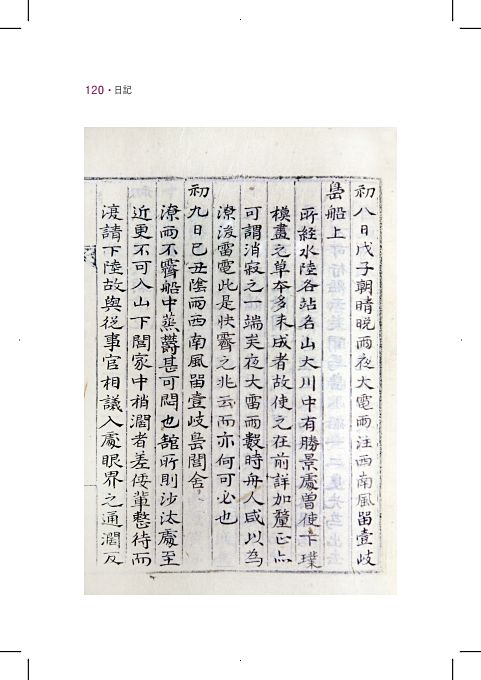 120 · 日記
初八日戊子朝晴晩雨夜大雹雨注西南風留壹歧
㠀船上
所経水陸各站名山大川中有勝景處曽使卞璞
模畫之草本多未成者故使之在前詳加釐正亦
可謂消寂之一端矣夜大雷雨數時舟人咸以為
潦後雷電此是快霽之兆云而亦何可必也
初九日己丑陰雨西南風留壹歧㠀閭舍
潦雨不霽船中蒸欝甚可悶也舘所則沙汰處至
近更不可入山下閭家中稍濶者差倭輩憗待而
濅請下陸故與従事官相議入處眼界之通濶反